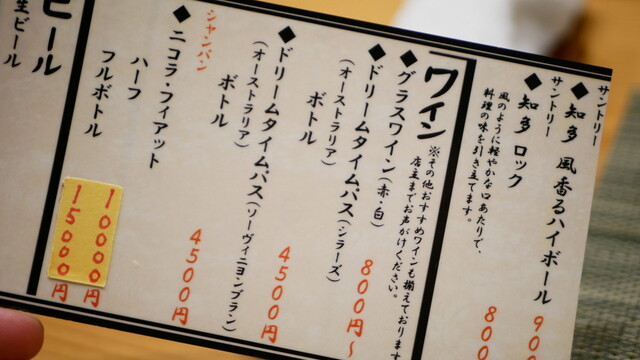 サントリー
◆知多 風香るハイボール 90
サントリー
◆知多 ロック 80
風のように軽やかな口あたりで、
料理の味を引き立てます。
ワイン
※その他おすすめワインも揃えております
店主までお声がけください。
◆グラスワイン(赤・白) 800円~
◆ドリームタイムパス(シラーズ)
(オーストラリア)
ボトル 4500円
◆ドリームタイムパス(ソーヴィニヨンブラン)
(オーストラリア)
ボトル 4500円
シャンパン
◆ニコラ・フィアット
ハーフ 10000円
フルボトル 15000円
ビール
生ビール